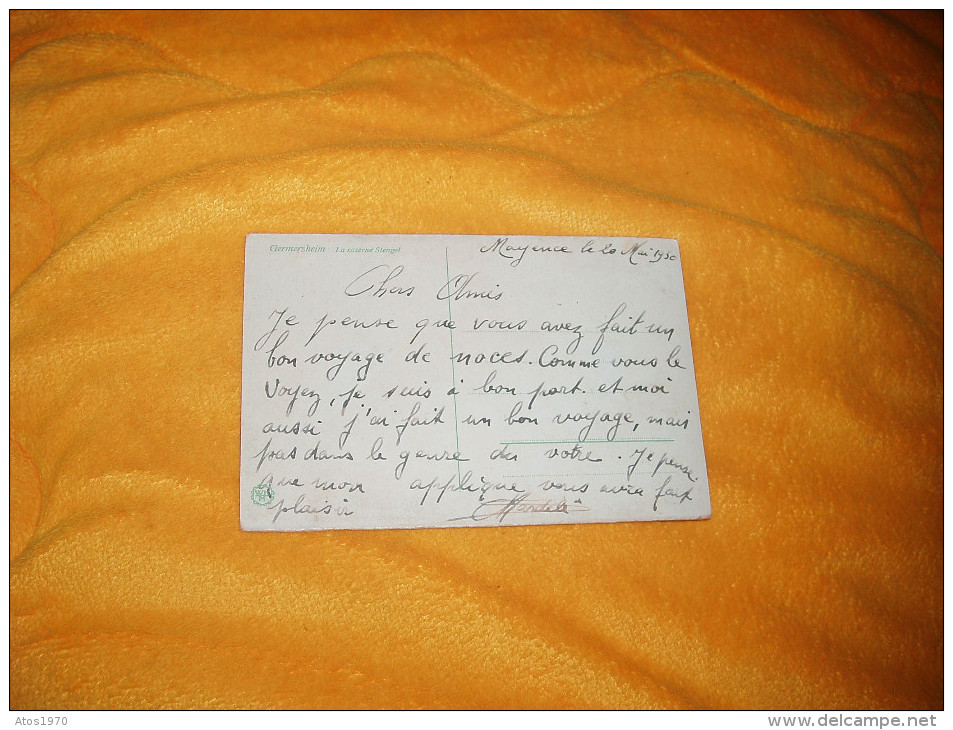 Germersheim La caserne Stengel
Mayence le 20 Mai 1930
Chers Amis
Je pense que vous avez fait un
bon voyage de noces. Comme vous le
voyez, je suis à bon port. et moi
aussi j'ai fait un bon voyage, mais
pas dans le genre du votre. Je pense
que mon applique vous aura fait
plaisir
Atos1970
www.delcampe.net